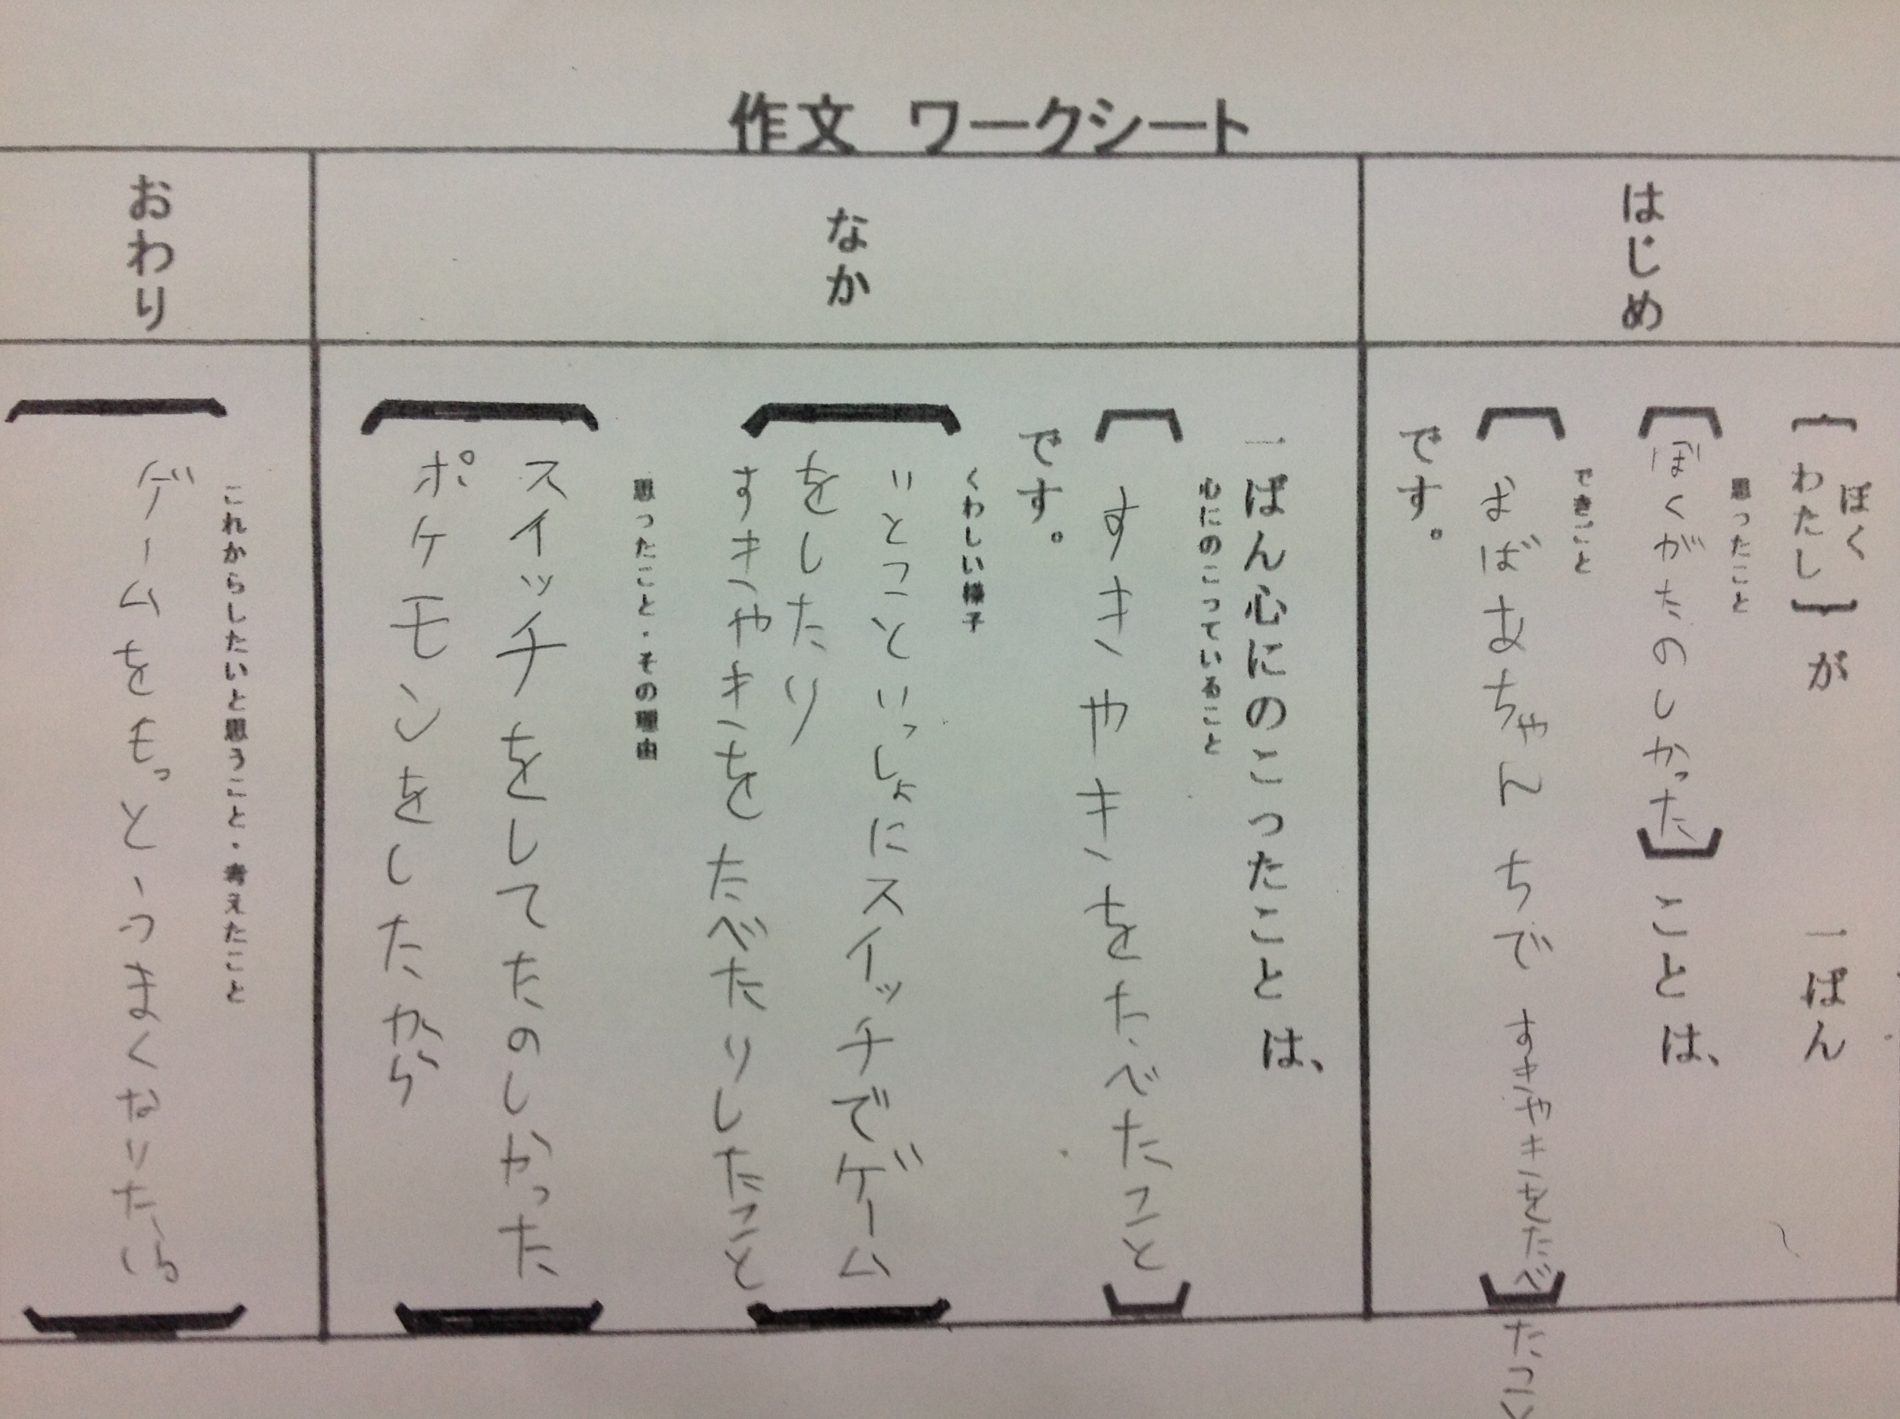 作文 ワークシート
はじめ
ぼく
〔わたし〕が 一ばん
思ったこと
〔ぼくがたのしかった〕ことは、
できごと
〔おばあちゃんちですきやきをたべ〕たこと
です。
なか
一ばん心にのこったことは、
心にのこっていること
〔すきやきをたべたこと〕
です。
くわしい様子
いとこといっしょにスイッチでゲーム
をしたり
すきやきをたべたりしたこと
思ったこと・その理由
スイッチをしてたのしかった
ポケモンをしたから
おわり
これからしたいと思うこと・考えたこと
ゲームをもっとうまくなりたい